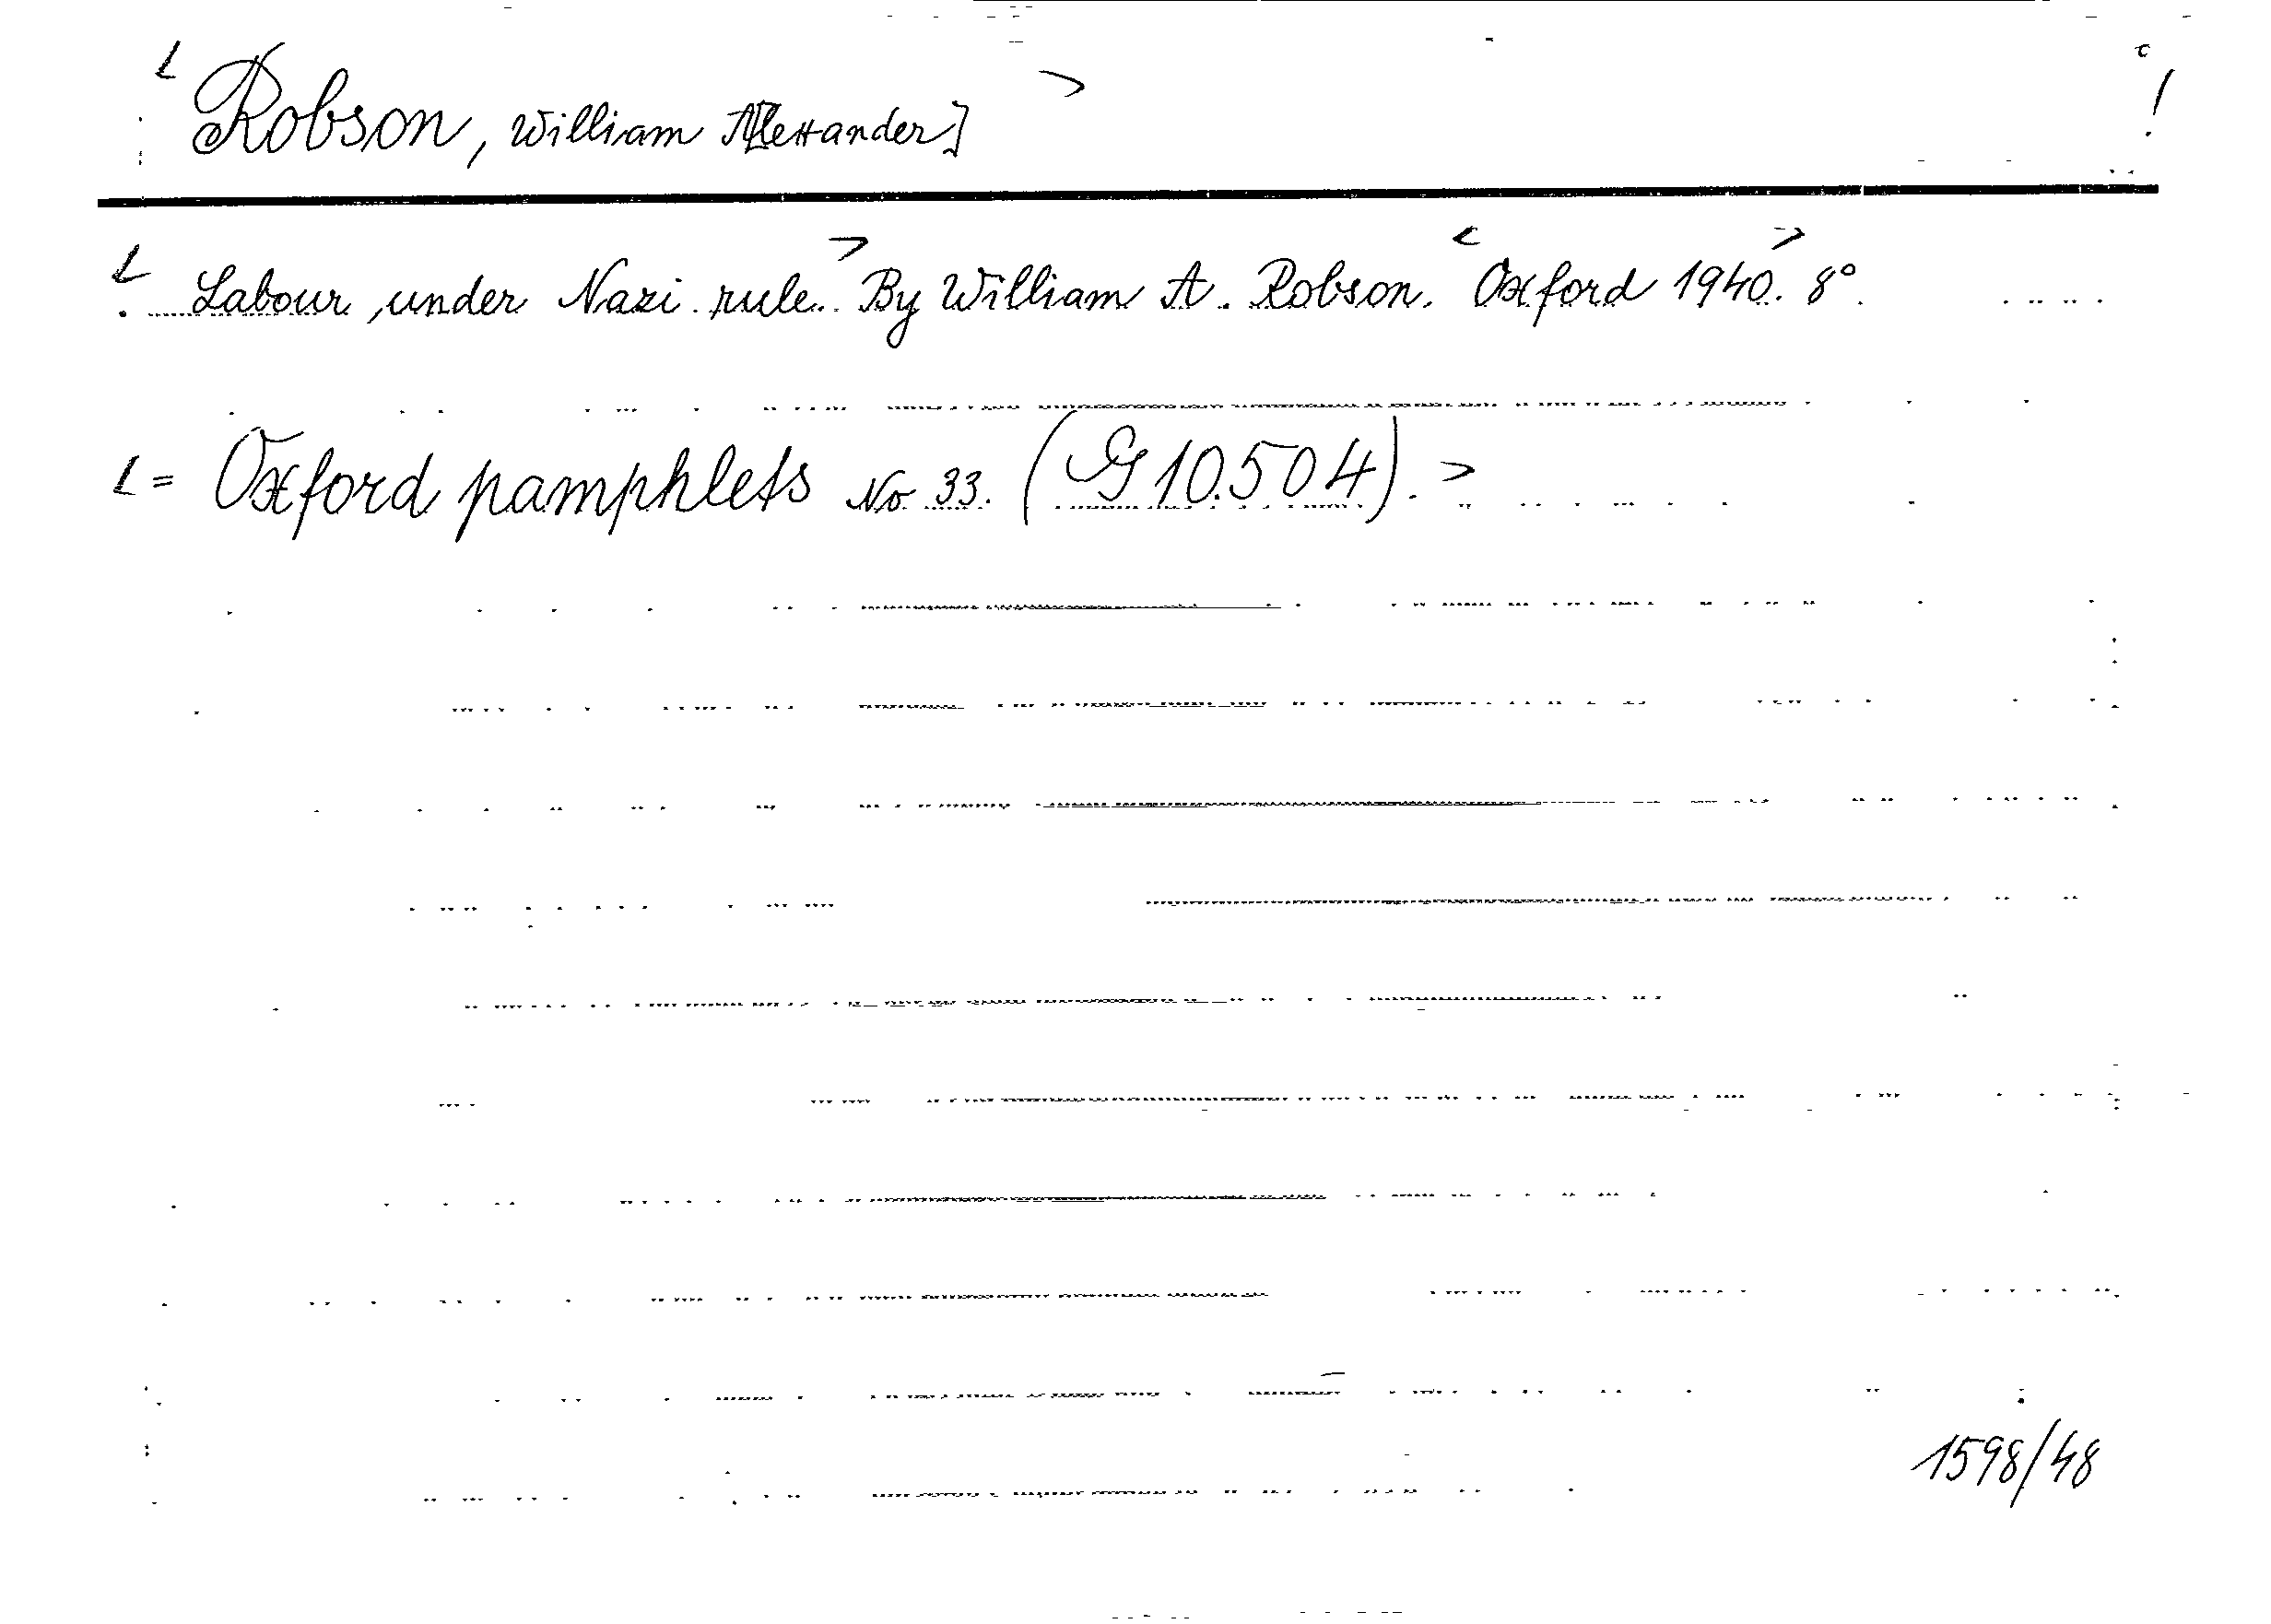 < Robson, William A[lexander] >
!
< Labour under Nazi rule. > By William A. Robson. < Oxford 1940. > 8°.
< = Oxford pamphlets No 33. (G 10.504). >
1598/48